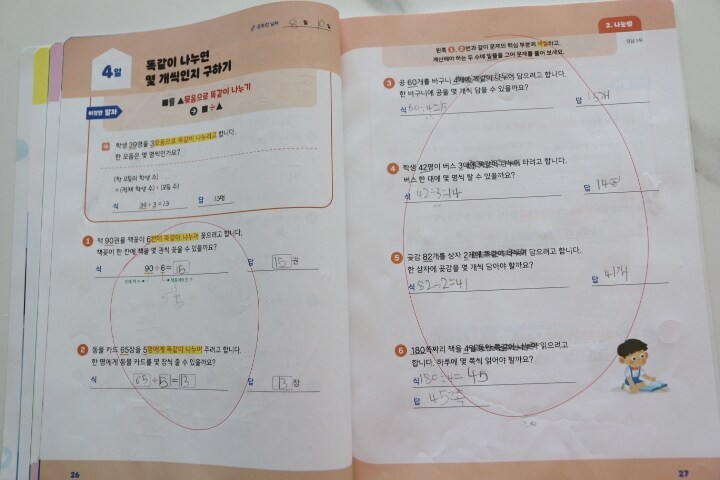 공부한 날짜 8 월 10 일
4일
똑같이 나누면
몇 개씩인지 구하기
이것만 알자
■를 ▲묶음으로 똑같이 나누기
➔ ■÷▲
예 학생 39명을 3모둠으로 똑같이 나누려고 합니다.
한 모둠은 몇 명씩인가요?
(한 모둠의 학생 수)
= (전체 학생 수) ÷ (모둠 수)
식 39÷3=13 답 13명
1 책 90권을 책꽂이 6칸에 똑같이 나누어 꽂으려고 합니다.
책꽂이 한 칸에 책을 몇 권씩 꽂을 수 있을까요?
식 90÷6=15 답 15 권
전체 책 수 책꽂이의 칸 수
2 동물 카드 65장을 5명에게 똑같이 나누어 주려고 합니다.
한 명에게 동물 카드를 몇 장씩 줄 수 있을까요?
식 65÷5=13 답 13 장
26
2. 나눗셈
정답 5쪽
왼쪽 1, 2번과 같이 문제의 핵심 부분에 색칠하고,
계산해야 하는 두 수에 밑줄을 그어 문제를 풀어 보세요.
3 공 60개를 바구니 4개에 똑같이 나누어 담으려고 합니다.
한 바구니에 공을 몇 개씩 담을 수 있을까요?
식 60÷4=15 답 15개
4 학생 42명이 버스 3대에 똑같이 나누어 타려고 합니다.
버스 한 대에 몇 명씩 탈 수 있을까요?
식 42÷3=14 답 14
5 곶감 82개를 상자 2개에 똑같이 나누어 담으려고 합니다.
한 상자에 곶감을 몇 개씩 담아야 할까요?
식 82÷2=41 답 41개
6 180쪽짜리 책을 4일 동안 똑같이 나누어 읽으려고
합니다. 하루에 몇 쪽씩 읽어야 할까요?
식 180÷4=45
답 45쪽
27